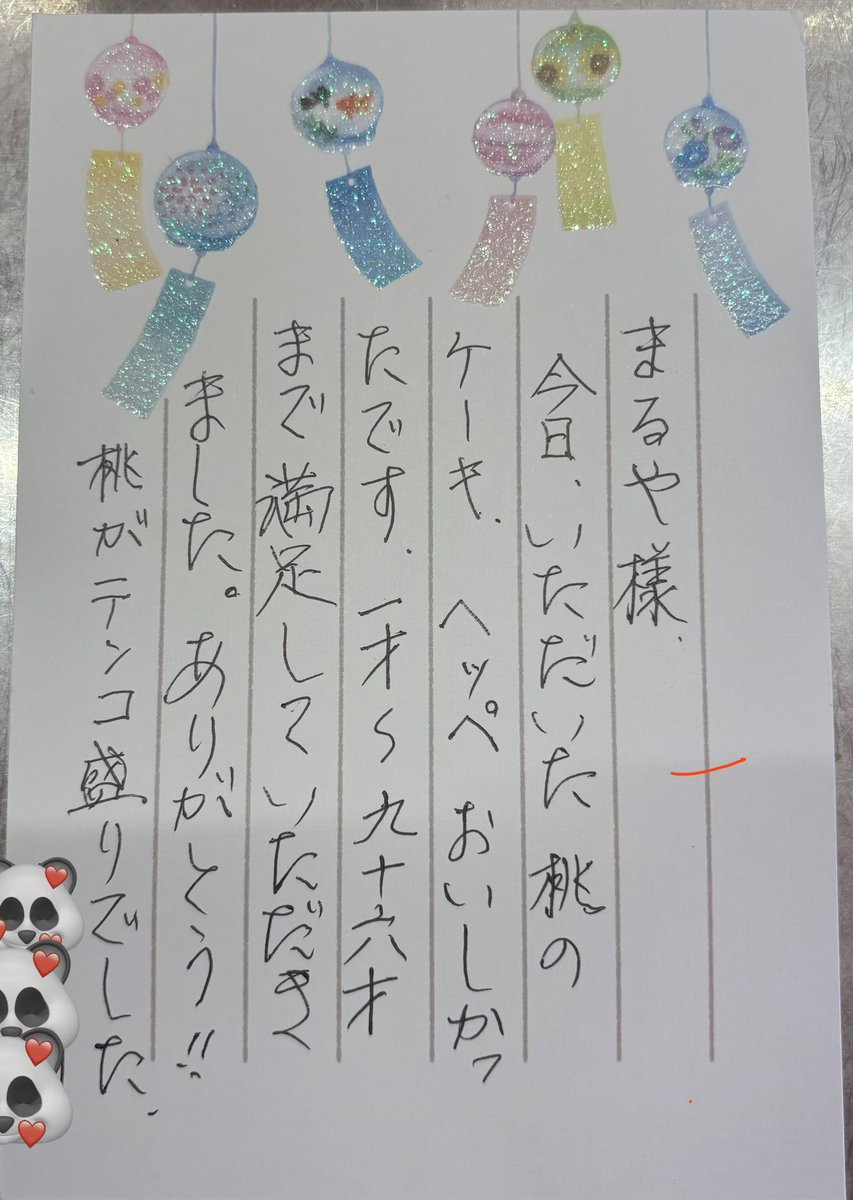 まるや様.
今日、いただいた桃の
ケーキ、ヘッペおいしかっ
たです.一才〜九十六才
まで満足していただき
ました。ありがとう!!
桃がテンコ盛りでした.